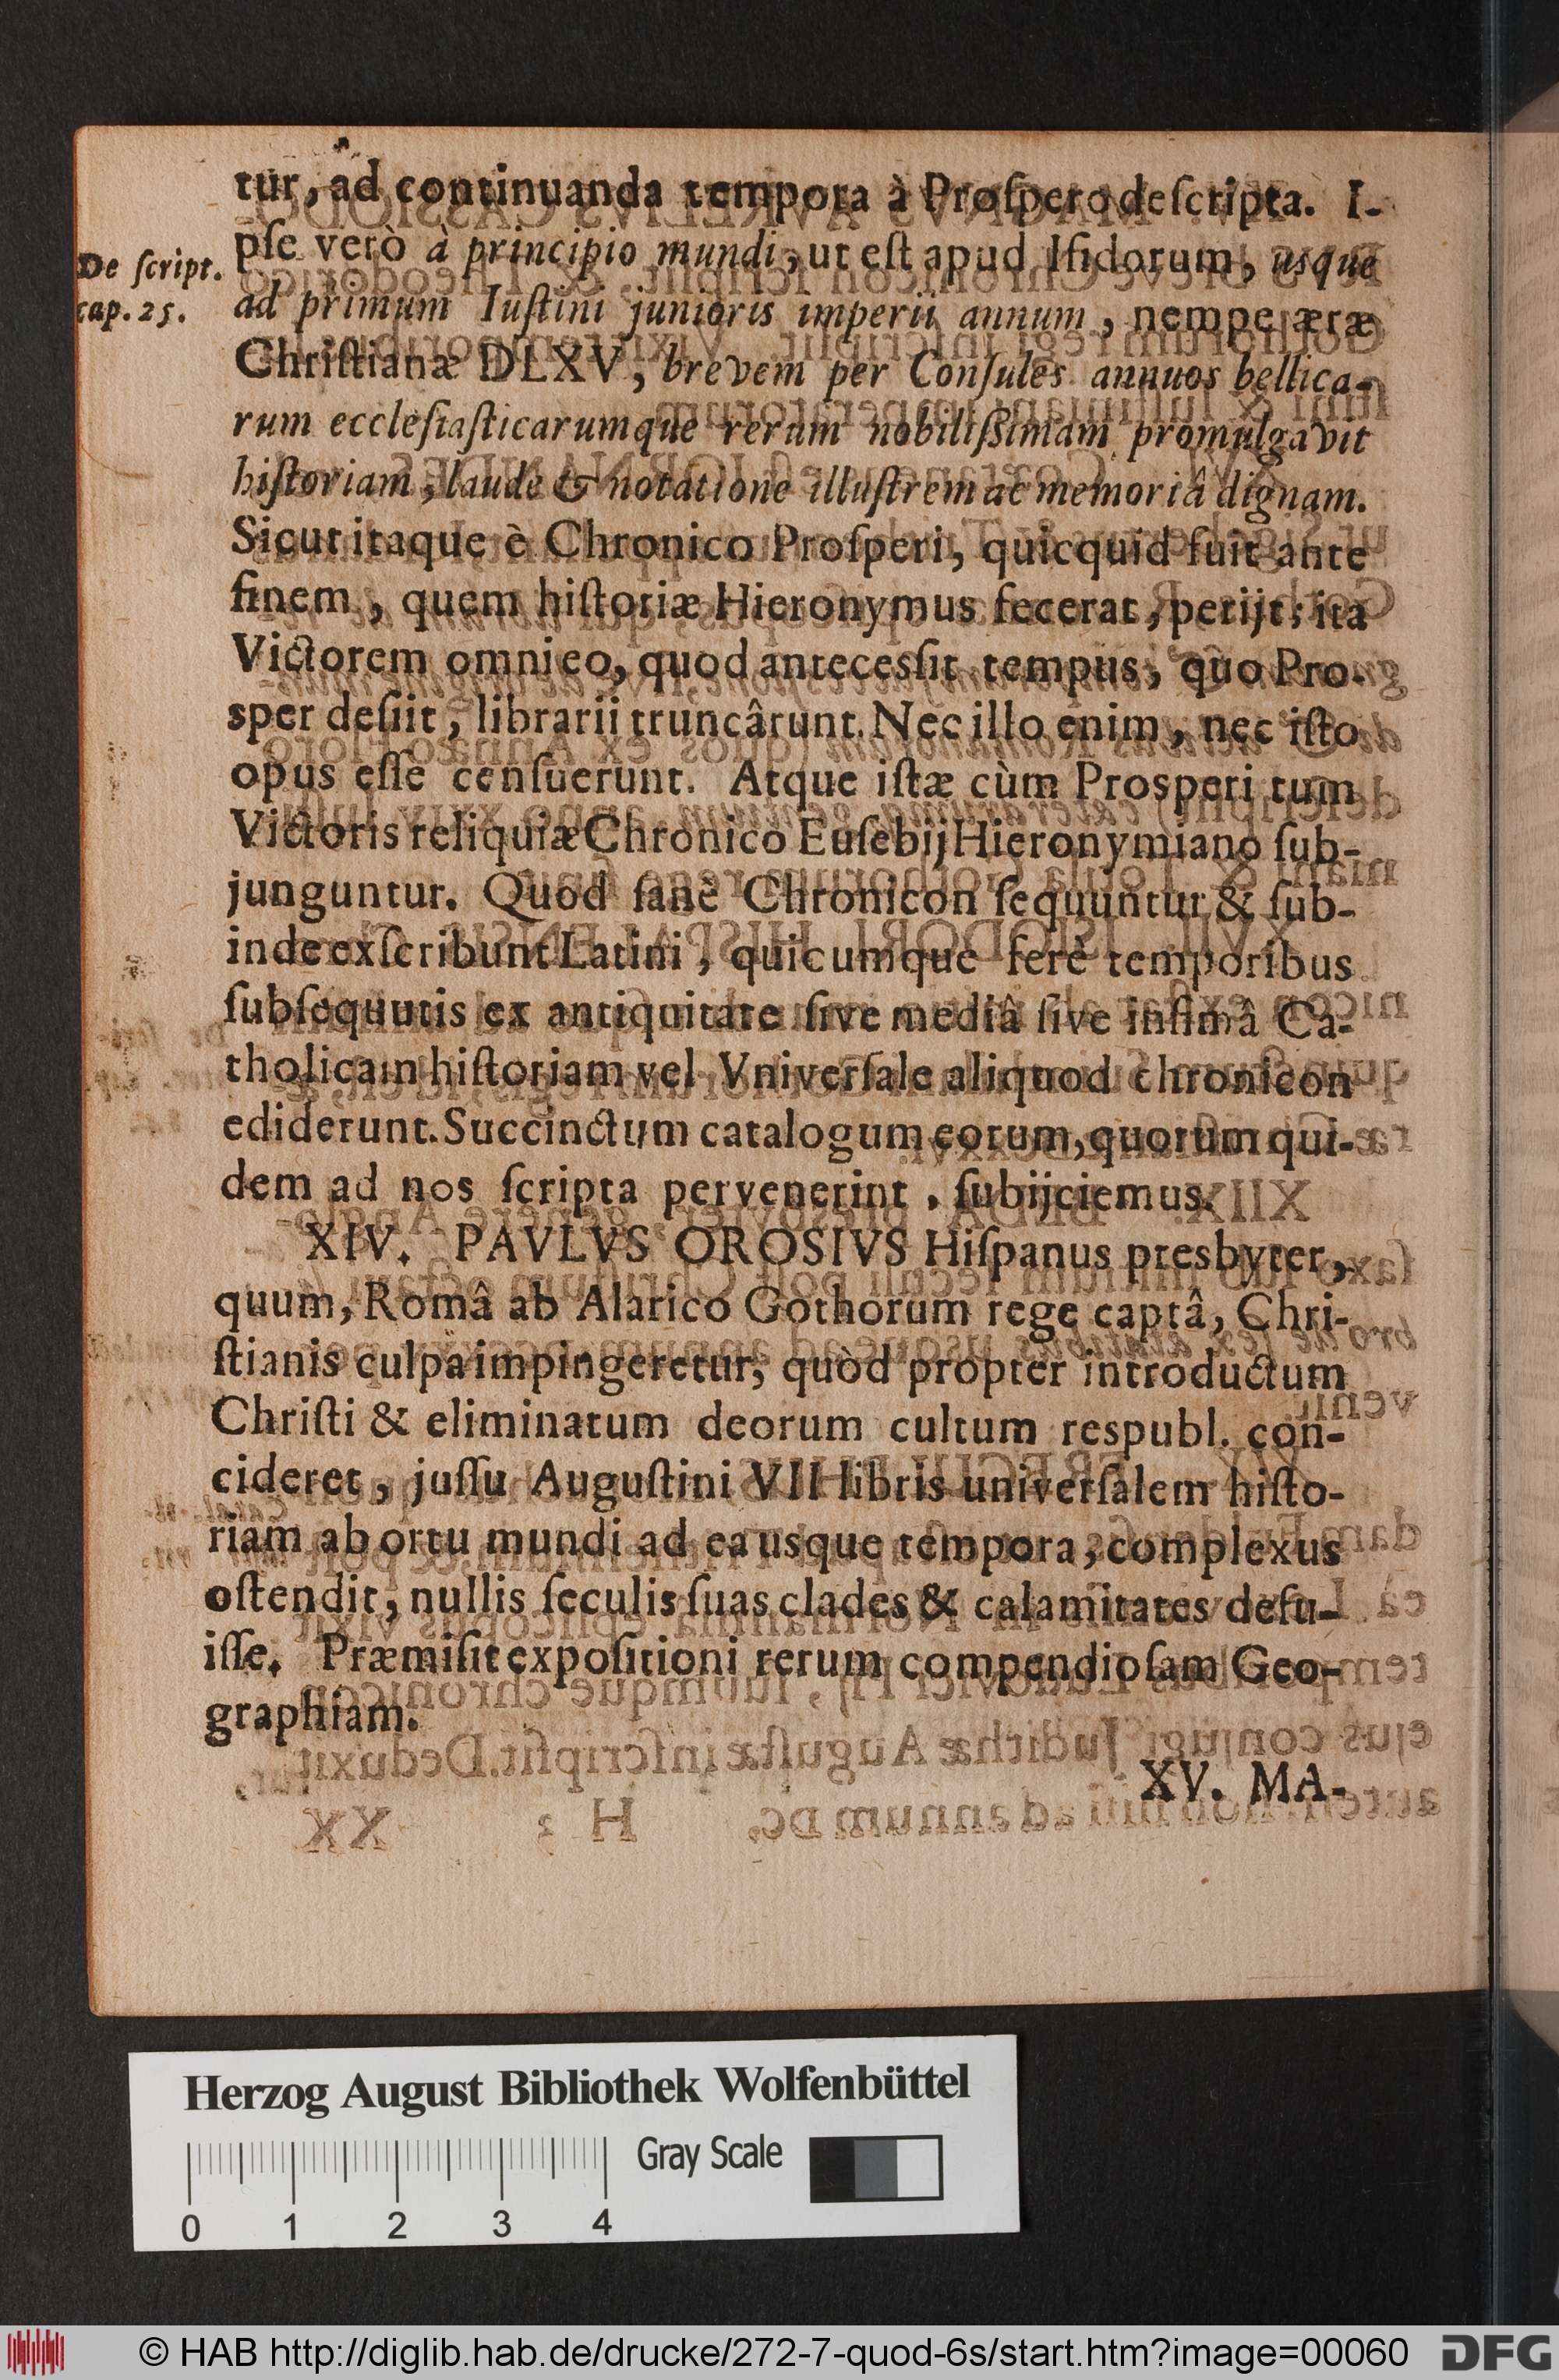 tur, ad continuanda tempora à Proſpero deſcripta. I-
pſe verò à principio mundi, ut eſt apud Iſidorum, usque
De ſcript.
cap. 25.
ad primum Iuſtini junioris imperii annum, nempe æræ
Chriſtianæ DLXV, brevem per Conſules annuos bellica-
rum eccleſiaſticarumque rerum nobiliſſimam promulgavit
hiſtoriam, laude & notatione illuſtrem ac memoriâ dignam.
Sicut itaque è Chronico Proſperi, quicquid fuit ante
finem, quem hiſtoriæ Hieronymus fecerat, perijt: ita
Victorem omni eo, quod antecesſit tempus, quo Pro-
sper deſiit, librarii truncârunt. Nec illo enim, nec iſto
opus eſſe cenſuerunt. Atque iſtæ cùm Prosperi tum
Victoris reliquiæ Chronico Euſebij Hieronymiano ſub-
junguntur. Quod ſanè Chronicon ſequuntur & ſub-
inde exſcribunt Latini, quicumque ferè temporibus
ſubſequutis ex antiquitate ſive mediâ ſive infimâ Ca-
tholicam hiſtoriam vel Vniverſale aliquod chronicon
ediderunt. Succinctum catalogum eorum, quorum qui-
dem ad nos ſcripta pervenerint, ſubijciemus.
XIV. PAVLVS OROSIVS Hiſpanus presbyter,
quum, Româ ab Alarico Gothorum rege captâ, Chri-
ſtianis culpa impingeretur, quòd propter introductum
Chriſti & eliminatum deorum cultum respubl. con-
cideret, juſſu Auguſtini VII libris univerſalem hiſto-
riam ab ortu mundi ad ea usque tempora, complexus
oſtendit, nullis ſeculis ſuas clades & calamitates defu-
iſſe. Præmiſit expoſitioni rerum compendioſam Geo-
graphiam.
XV. MA-
Herzog August Bibliothek Wolfenbüttel
Gray Scale
0 1 2 3 4
© HAB http://diglib.hab.de/drucke/272-7-quod-6s/start.htm?image=00060
DFG